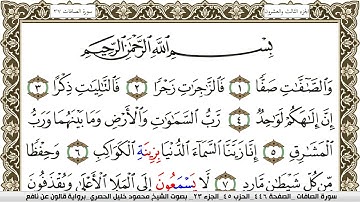 الجزء الثالث والعشرون
سورة الصافات ٣٧
بِسْمِ اللَّهِ الرَّحْمَٰنِ الرَّحِيمِ
وَالصَّٰٓفَّٰتِ صَفّٗا ١ فَالزَّٰجِرَٰتِ زَجْرٗا ٢ فَالتَّٰلِيَٰتِ ذِكْرًا ٣
إِنَّ إِلَٰهَكُمْ لَوَٰحِدٞ ٤ رَّبُّ السَّمَٰوَٰتِ وَالْأَرْضِ وَمَا بَيْنَهُمَا وَرَبُّ
الْمَشَٰرِقِ ٥ إِنَّا زَيَّنَّا السَّمَآءَ الدُّنْيَا بِزِينَةِ الْكَوَاكِبِ ٦ وَحِفْظٗا
مِّن كُلِّ شَيْطَٰنٖ مَّارِدٖ ٧ لَّا يَسْمَعُونَ إِلَى الْمَلَإِ الْأَعْلَىٰ وَيُقْذَفُونَ
سورة الصافات _ الصفحة ٤٤٦ _ الحزب ٤٥ _ الجزء ٢٣ _ بصوت الشيخ محمود خليل الحصري برواية قالون عن نافع